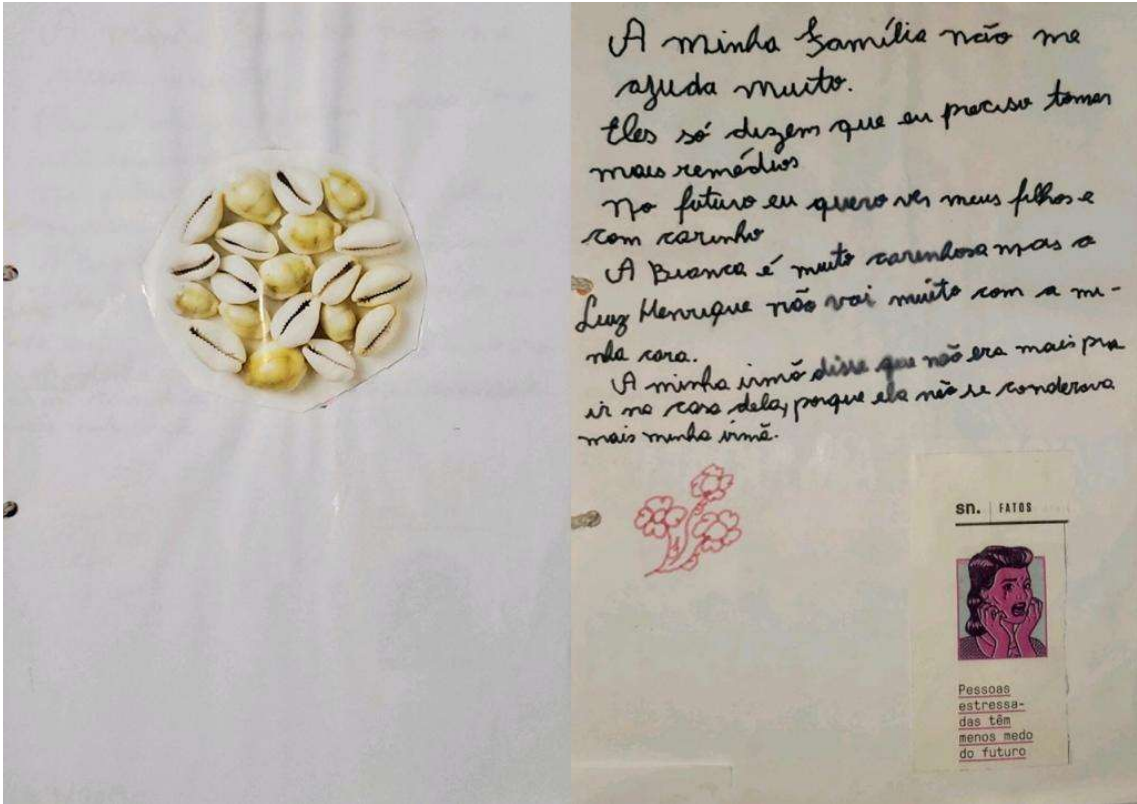 A minha família não me
ajuda muito.
Eles só dizem que eu preciso tomar
mais remédios
No futuro eu quero ver meus filhos e
com carinho
A Bianca é muito carinhosa mas o
Luiz Henrique não vai muito com a mi-
nha cara.
A minha irmã disse que não era mais pra
ir na casa dela, porque ela não se conderava
mais minha irmã.
sn. | FATOS
Pessoas
estressa-
das têm
menos medo
do futuro